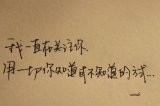 我一直在关注你
用一切你知道或不知道的方式…